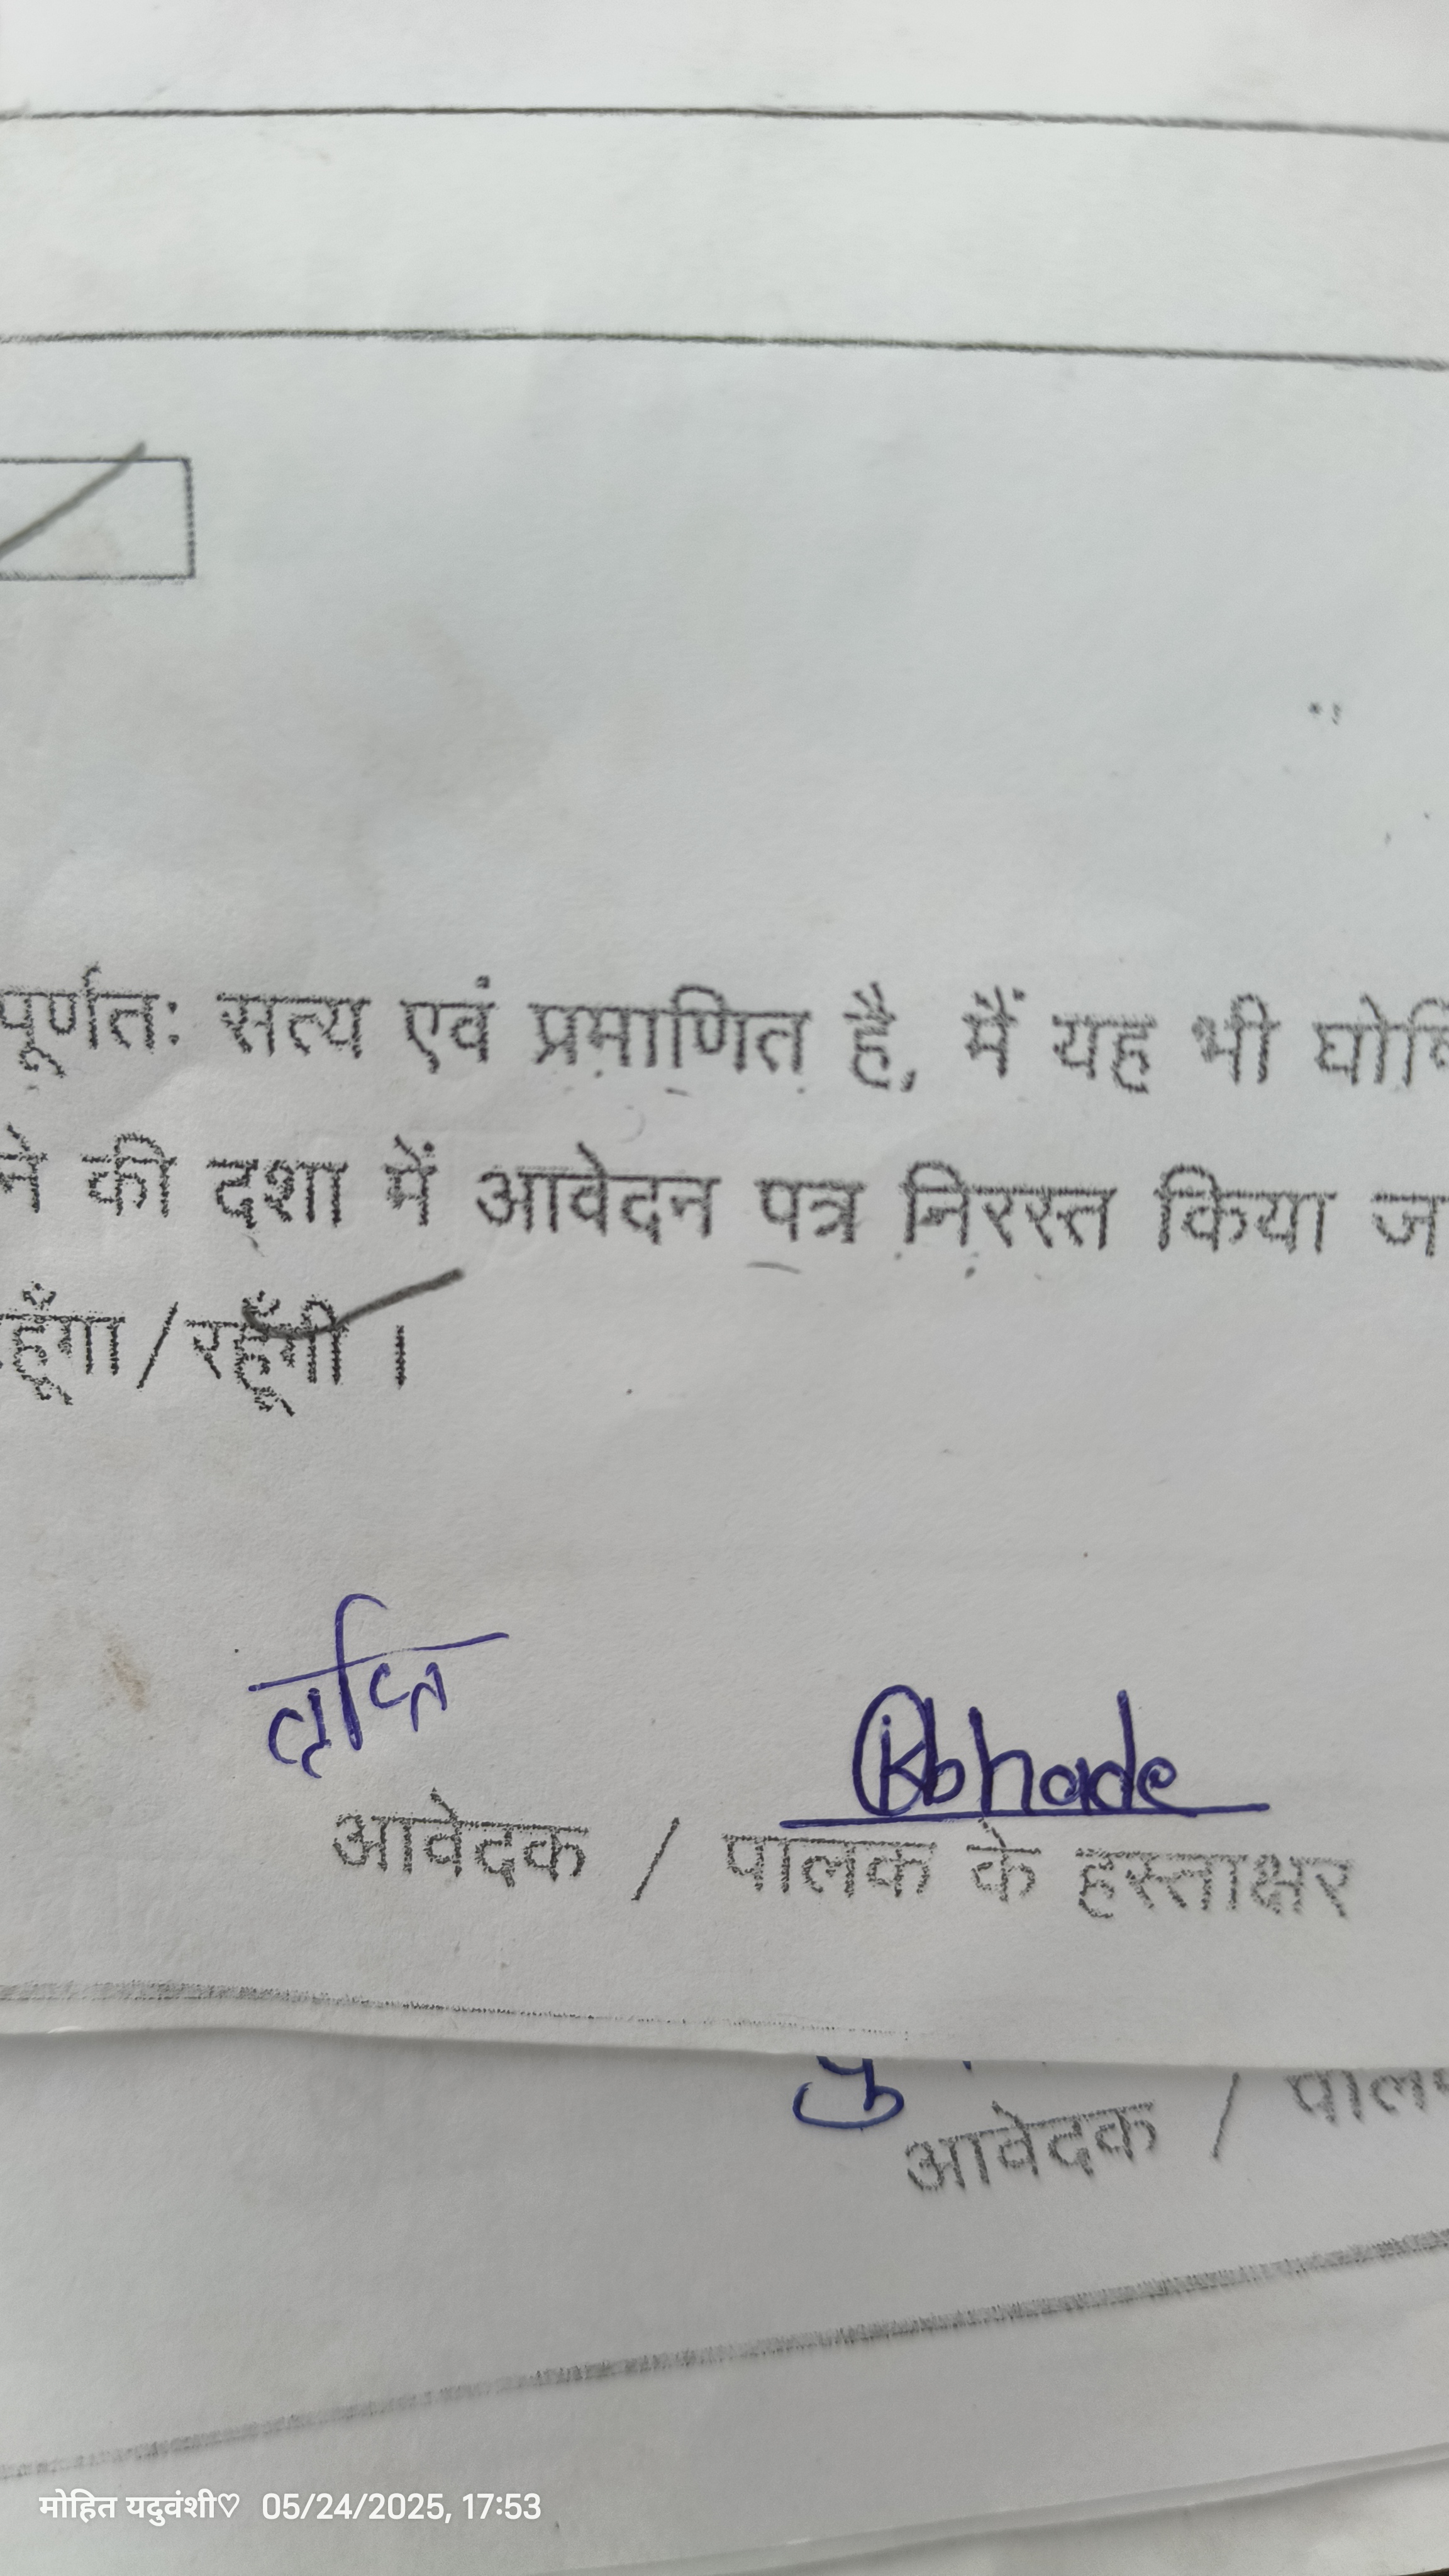 पूर्णतः सत्य एवं प्रमाणित है, मैं यह भी
ने की दशा में आवेदन पत्र निरस्त किया
/रहूँगी ।
तृप्ति
Kbhade
आवेदक / पालक के हस्ताक्षर
आवेदक /
मोहित यदुवंशी♡ 05/24/2025, 17:53